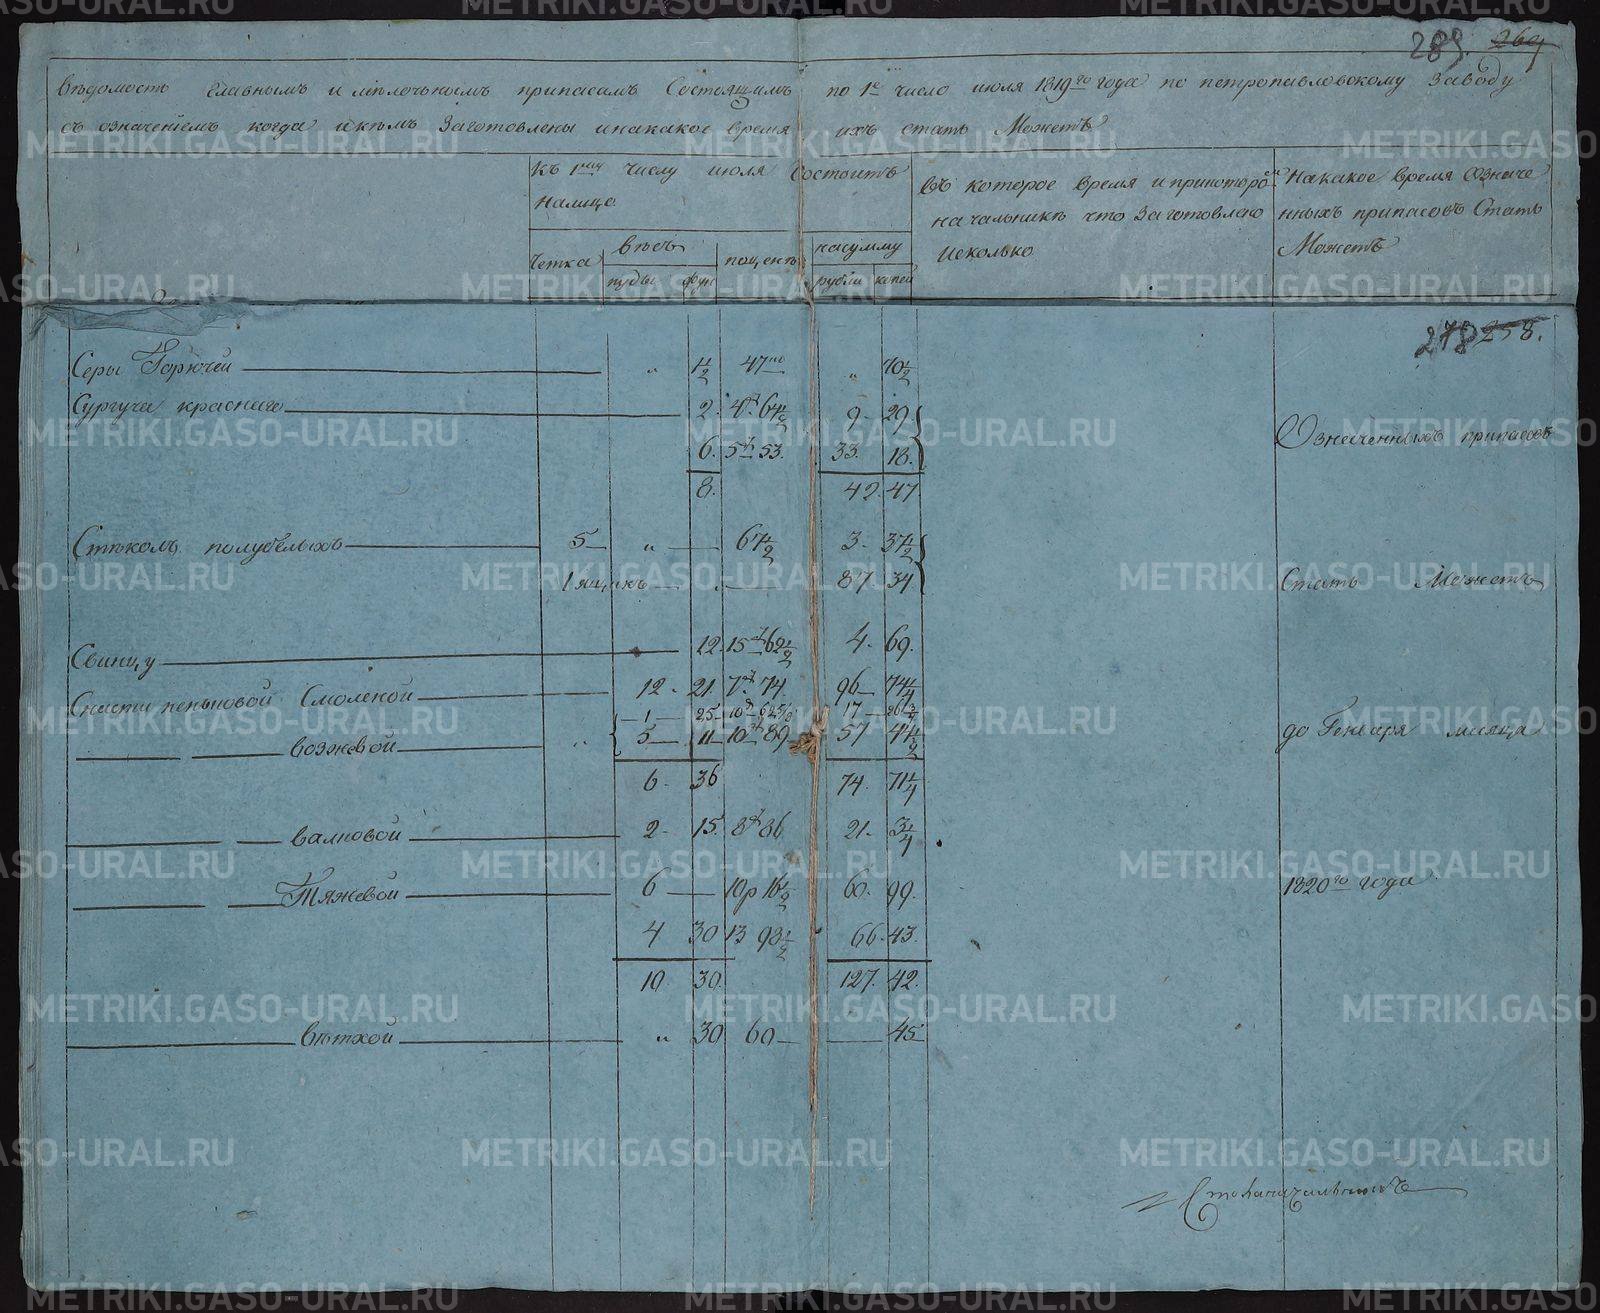 289. 269
Вѣдомость Главнымъ и мѣлочьнымъ припасамъ Состоящимъ по 1е число июля 1819го года по петропавловскому заводу
съ означениемъ когда и кѣмъ Заготовлены и накакое время ихъ стать Можетъ
Къ 1му числу июля Состоитъ
налицо
Четка
вѣсъ
пуды фун
поценѣ
насумму
рубли копей
въ которое время и прикоторомъ
начальникѣ что Заготовлено
исколько
Накакое время Означе
нныхъ припасовъ Стать
Можетъ
278 258.
Серы Горючей „ 1/2 47 „ 70 1/2
Сургуча краснаго 2. 4р 64 1/2 9 29
6. 5р 53. 33. 18.
8. 42. 47
Означенныхъ припасовъ
Стѣколъ полубелыхъ 5 „ 67 1/2 3. 37 1/2
1 ящикъ „ 87. 34
Стать Можетъ
Свинцу 12. 15р 62 1/2 4. 69.
Снасти пеньковой Смоленой 12. 21. 7р 74. 96 74 1/4
1 25 10р 62 5/8 17 26 3/4
возжевой „ 5 11 10р 89 57 44 1/2
до Генваря месяца
6. 36 74. 71 1/4
валковой 2. 15. 8р 86 21. 3 1/4
Тяжевой 6 10р 16 1/2 60. 99.
1820го года
4 30 13 98 1/2 66. 43.
10 30. 127. 42.
вѣтхой „ 30 60 45